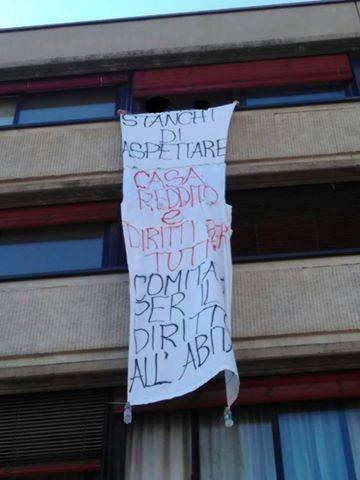 STANCHI
DI
ASPETTARE
CASA
REDDITO
e
DIRITTI PER
TUTTI
COMITA
PER IL
DIRITTO
ALL' ABIT